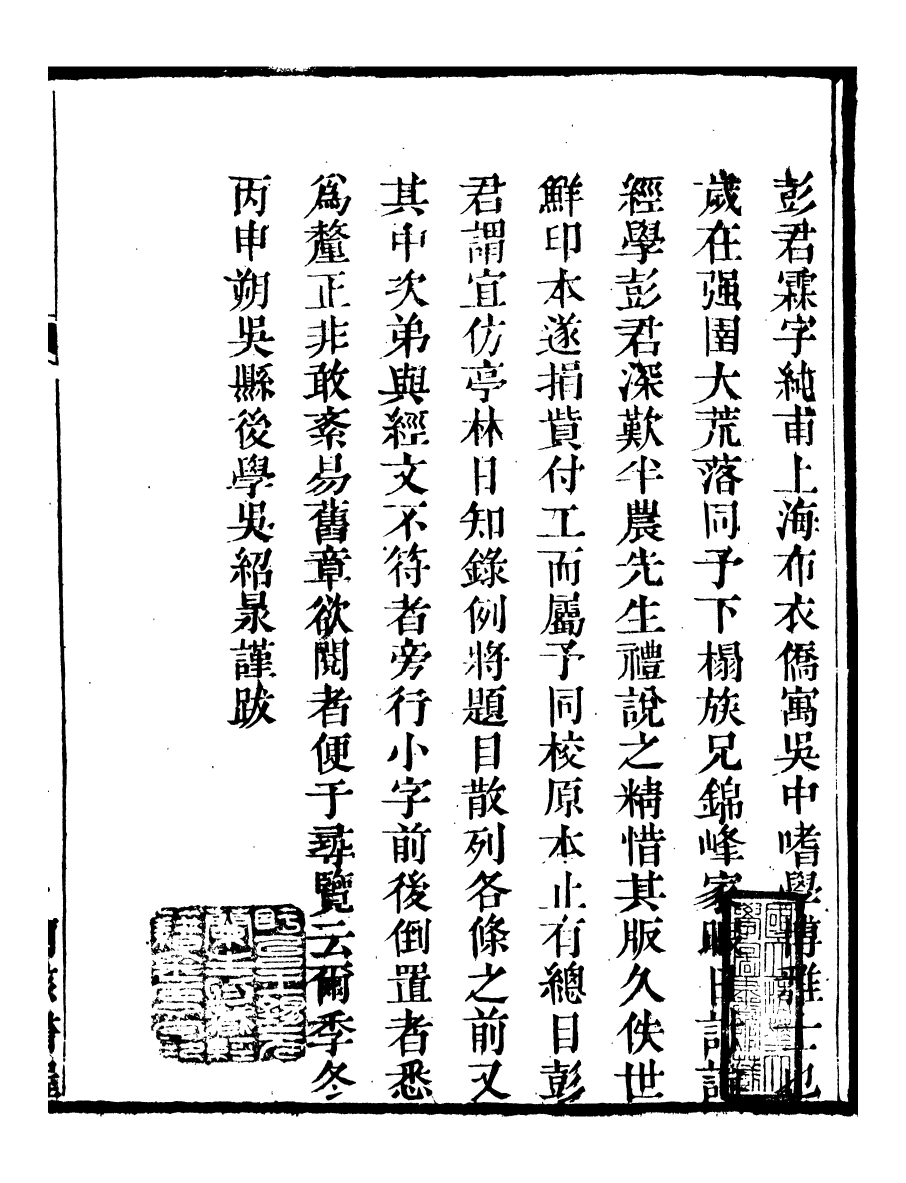 彭君霖字純甫上海布衣僑寓吳中嗜學博雅士也
歲在强圉大荒落同予下榻族兄錦峰家暇日討論
經學彭君深歎半農先生禮說之精惜其版久佚世
鮮印本遂捐貲付工而屬予同校原本止有總目彭
君謂宜仿亭林日知錄例將題目散列各條之前又
其中次弟與經文不符者旁行小字前後倒置者悉
爲釐正非敢紊易舊章欲閱者便于尋覽云爾季冬
丙申朔吳縣後學吳紹㬎謹跋